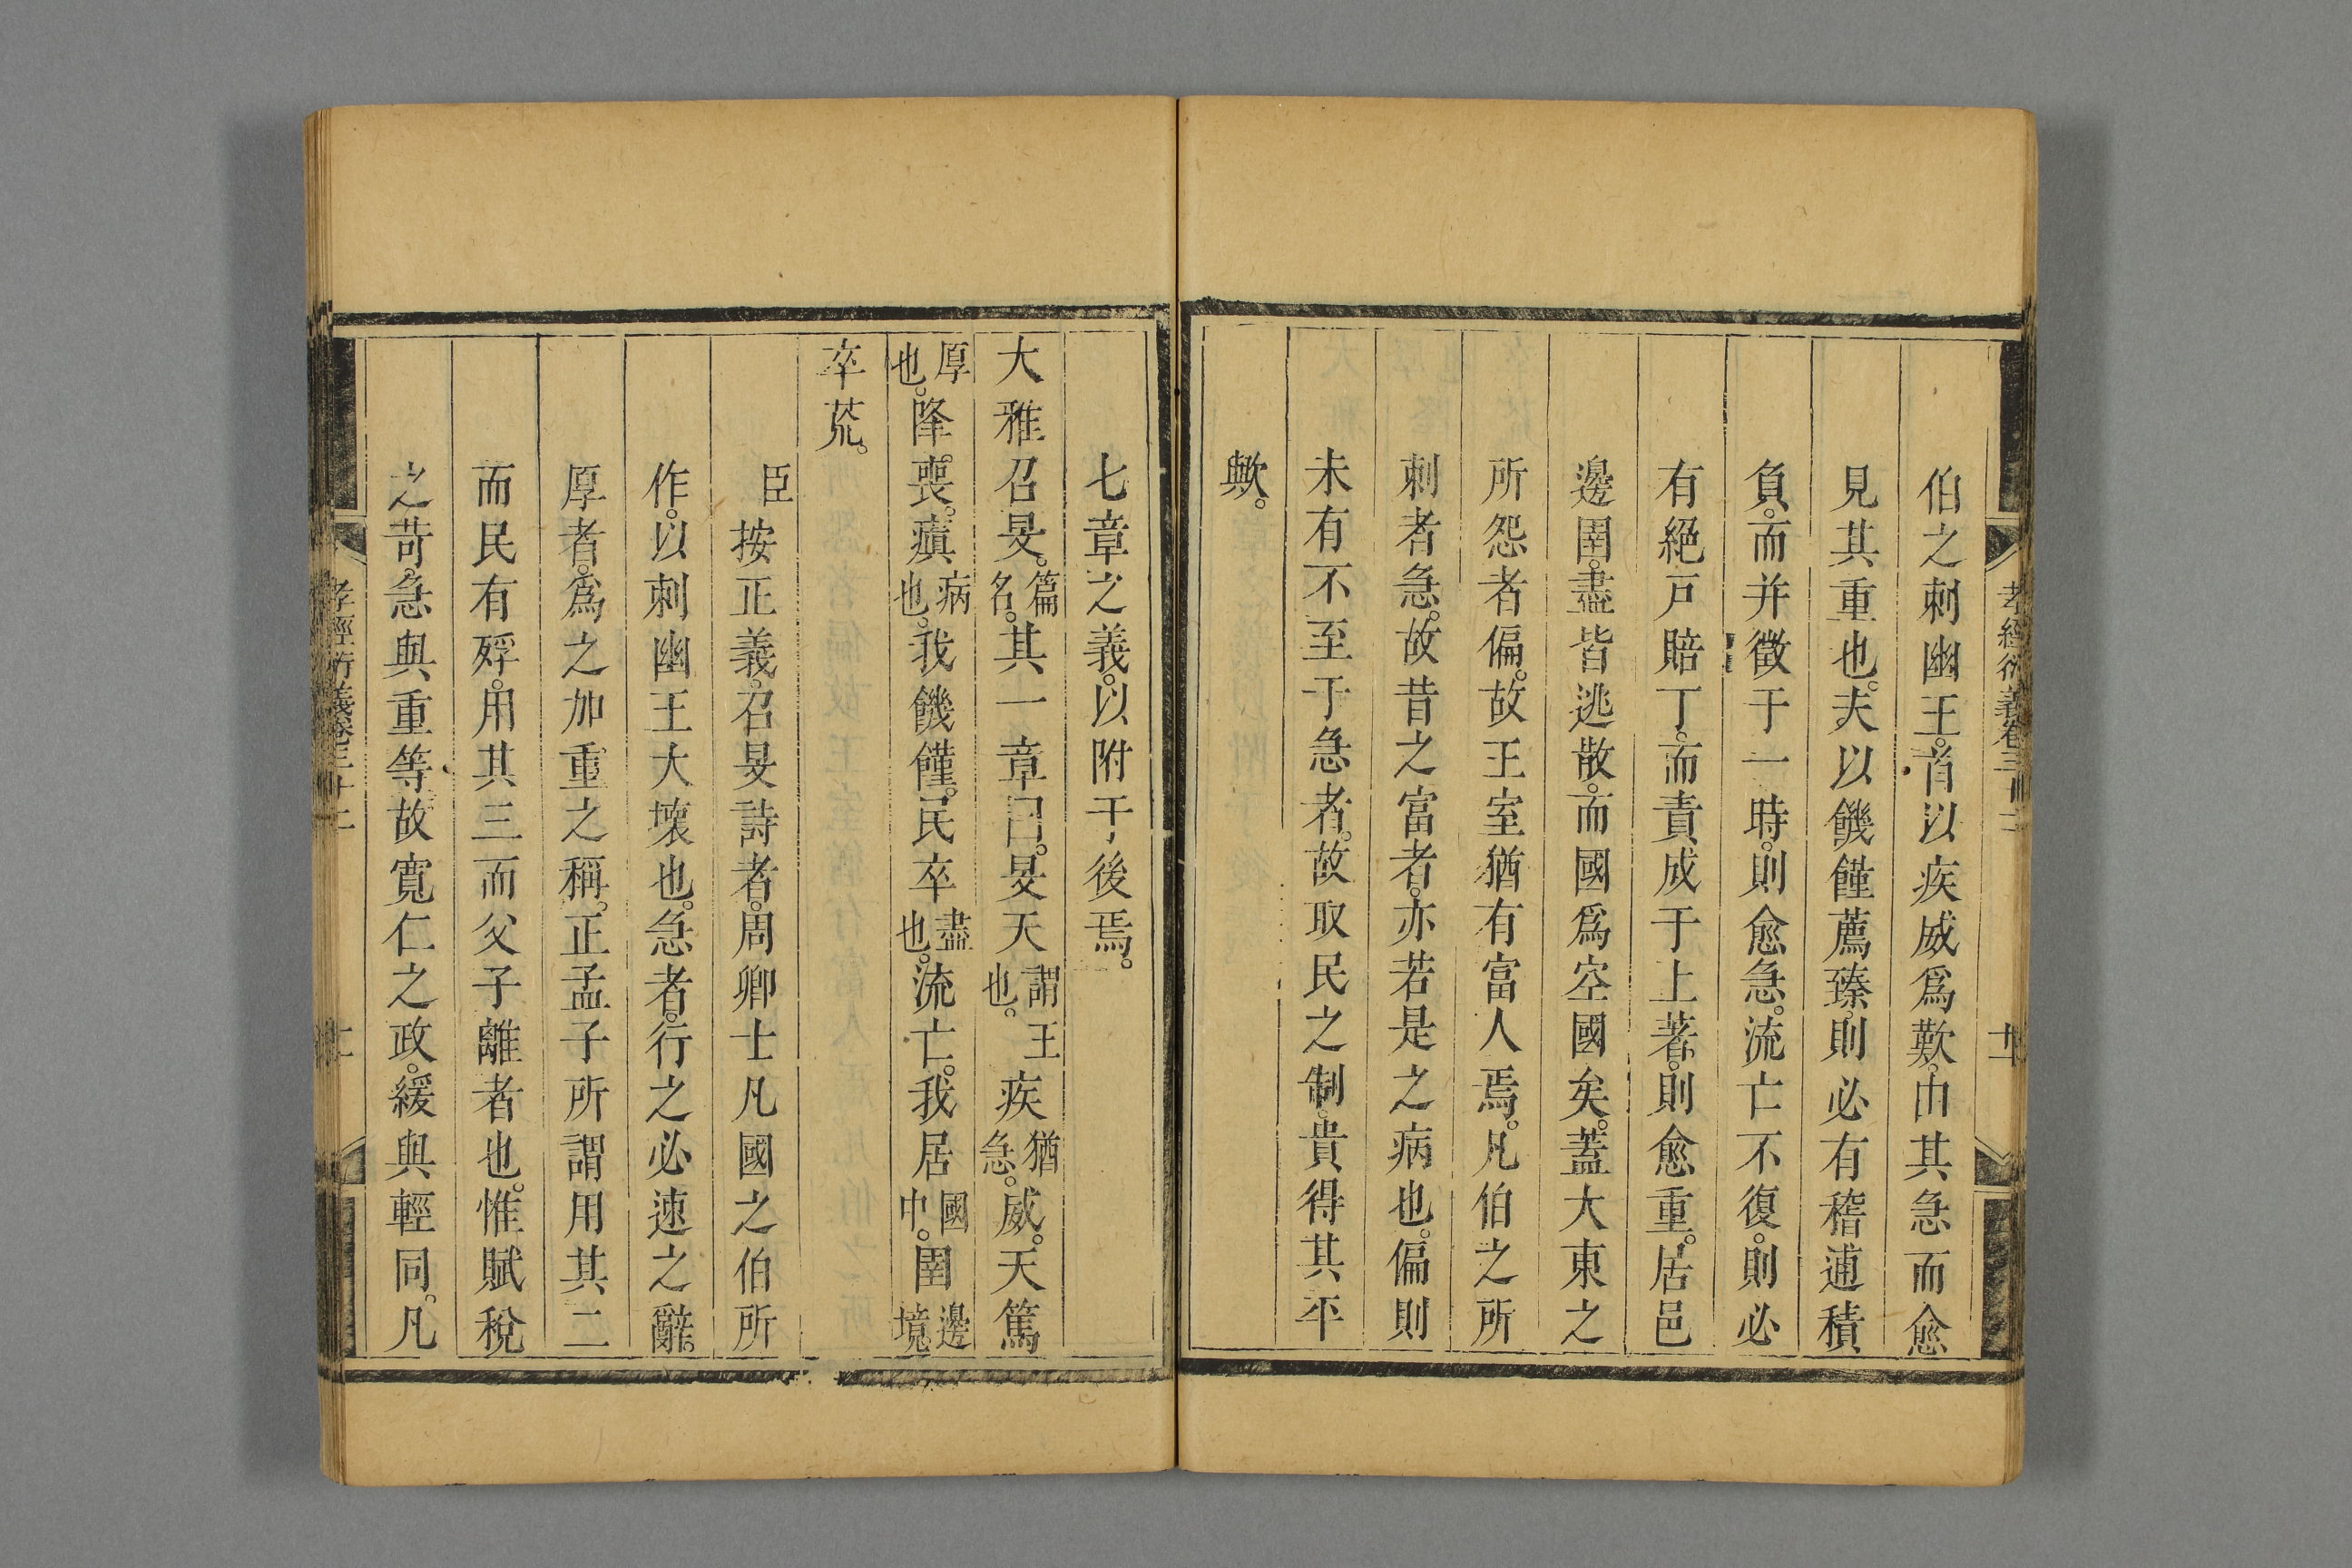 孝經衍義卷三十二
伯之刺幽王。首以疾威爲歎。由其急而愈
見其重也。夫以饑饉薦臻。則必有稽逋積
負。而并徵于一時。則愈急。流亡不復。則必
有絕戸賠丁。而責成于上著。則愈重。居邑
邊圉。盡皆逃散。而國爲空國矣。蓋大東之
所怨者偏。故王室猶有富人焉。凡伯之所
刺者急。故昔之富者。亦若是之病也。偏則
未有不至于急者。故取民之制。貴得其平
歟。
七章之義。以附于後焉。
大雅召旻。篇名。其一章曰。旻天謂王也。疾猶急。威。天篤
厚也。降喪。瘨病也。我饑饉。民卒盡也。流亡。我居國中。圉邊境
卒荒。
臣按正義。召旻詩者。周卿士凡國之伯所
作。以刺幽王大壞也。急者。行之必速之辭。
厚者。爲之加重之稱。正孟子所謂用其二
而民有殍。用其三而父子離者也。惟賦稅
之苛。急與重等。故寬仁之政。緩與輕同。凡
孝經衍義卷三十二